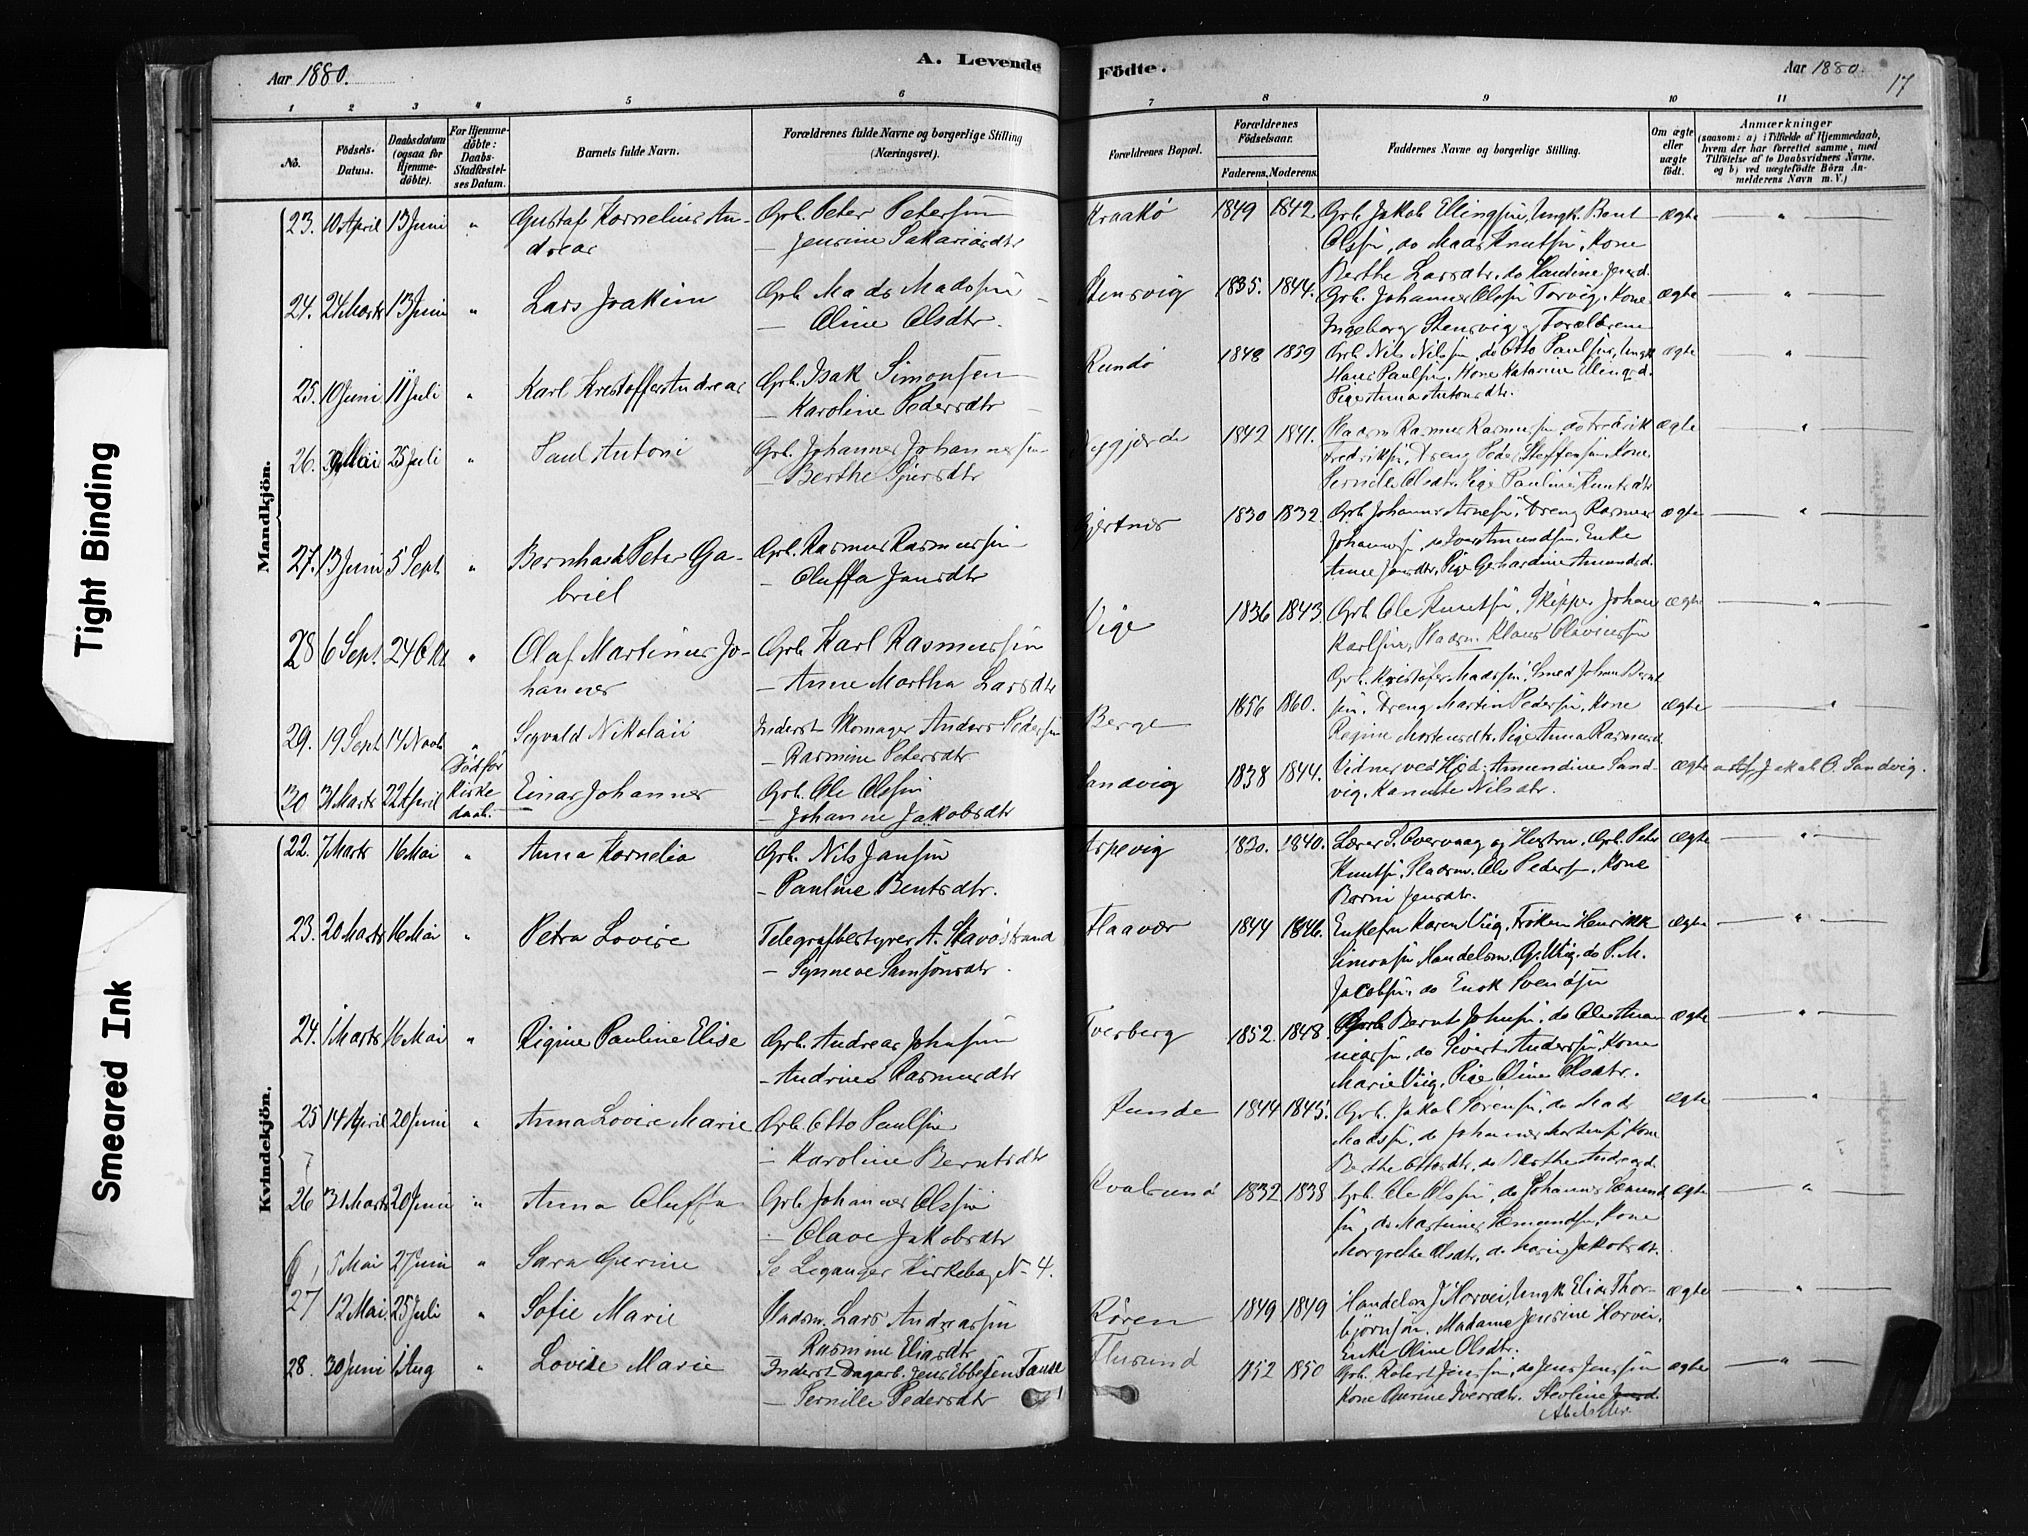 Aar 1880.
A. Levende
Födte.
Aar 1880.
17
1 2 3 4 5 6 7 8 9 10 11
No.
Födsels-
Datum.
Daabsdatum
(ogsaa for
Hjemme-
döbte).
For Hjemme-
döbte:
Daabs-
Stadfæstel-
ses Datum.
Barnets fulde Navn.
Forældrenes fulde Navne og borgerlige Stilling
(Næringsvei).
Forældrenes Bopæl.
Forældrenes
Födselsaar.
Faderens. Moderens.
Faddernes Navne og borgerlige Stilling.
Om ægte
eller
uægte
födt.
Anmærkninger
(saasom: a) i Tilfælde af Hjemmedaab,
hvem der har forrettet samme, med
Tilföielse af to Daabsvidners Navne,
og b) ved uægtefödte Börn An-
melderens Navn m. V.)
Mandkjön.
23. 10 April 13 Juni " Gustaf Kornelius An-
dreas
Grb. Peter Petersen
— Jensine Sakariasdtr
Kraakö 1849 1842. Grb. Jakob Ellingsen, Ungk. Bent
Olssen, do Mads Knutsen, Kone
Berthe Larsdtr. do
ægte — " —
24. 24 Marts 13 Juni " Lars Joakim
Grb. Mads Madssen
— Oline Olsdtr.
Stensvig 1835. 1844. Grb. Johannes Olssen Torvig, Kone
Ingeborg Stensvig og Forældrene
ægte — " —
25. 10 Juni 11 Juli " Karl Kristoffer Andreas
Grb. Isak Simonsen
— Karoline Pedersdtr
Rundö 1848 1859 Grb. Nils Nilssen, do Otto Paulsen, Ungk
Hans Paulsen, Kone Katarine
Pige Anna Antonsdtr.
ægte — " —
26. Mai 25 Juli " Paul Antoni
Grb. Johannes Johannessen
— Berthe Sjursdtr
1842 1841. Husm. Rasmus Rasmussen do Fredrik
Fredriksen, Dreng Peder Steffensen, Kone
Pernille Olsdtr. Pige Pauline Knutsdtr
ægte — " —
27. 13 Juni 5 Sept. " Bernhard Peter Ga-
briel
Grb. Rasmus Rasmussen
— Oluffa Jansdtr
Gjertnes 1830 1832. Grb. Johannes Arnesen, Dreng Rasmus
Johannsen, do Iver Amundsen, Enke
Anne Jansdtr, Pige Gerhardine Amundsd.
ægte — " —
28 6 Sept. 24 Okt. " Olaf Martinus Jo-
hannes
Grb. Karl Rasmussen
— Anne Martha Larsdtr
Vige 1836 1843. Grb. Ole Knutsen, Skipper Johan
Karlsen, Husm. Klaus Olavinssen
ægte — " —
29. 19 Sept 14 Novb. " Segvald Nikolai
Inderst Skomager Anders Pedersen
— Rasmine Petersdtr
Berge 1856 1860. Grb. Kristofer Madssen, Smed Johan Bernt
sen, Dreng Martin Pedersen, Kone
Regine Mortensdtr. Pige Anna Rasmusd.
ægte — " —
30 31 Marts 22 April Död før
Kirke
daab. Einar Johannes
Grb. Ole Olssen
— Johanne Jakobsdtr
Sandvig 1838 1844. Vidner ved Hjd: Amundine Sand-
vig, Kanutte Nilsdtr.
ægte Jakob O. Sandvig.
Kvindekjön.
22. 7 Marts 16 Mai " Anna Kornelia
Grb. Nils Jansen
— Pauline Bentsdtr.
Aspevig 1830. 1840. Lærer S. Overvaag og Hustru, Grb. Peter
Knutsen, Husm. Ole Pedersen, Kone
Jensdtr.
ægte — " —
23. 20 Marts 16 Mai " Petra Lovise
Telegrafbestyrer A. Stavöstrand
— Synneve Samsonsdtr.
Flaavær 1844 1846. Enkefru Karen Viig, Fröken Henrikke
Simonsen, Handelsm. O. Viig, do P. M.
Jacobsen, do Enok Svenösen
ægte — " —
24. 1 Marts 16 Mai " Rigine Pauline Elise
Grb. Andreas Johnsen
— Andrine Rasmusdtr
Tverberg 1852. 1848. Grb Bernt Johnsen, do Ole Ana-
niassen, do Sivert Anderssen, Kone
Marie Viig, Pige Oline Olsdtr.
ægte — " —
25 14 April 20 Juni " Anna Lovise Marie
Grb. Otto Paulsen
— Karoline Berntsdtr
Runde 1844 1845. Grb. Jakob Sørensen, do Mads
Madssen, do Johannes Mortensen, Kone
Berthe Ottosdtr, do Berthe Andreasd.
ægte — " —
26 31 Marts 20 Juni " Anna Oluffa
Grb. Johannes Olssen
— Olave Jakobsdtr
Kvalsund 1832 1838 Grb. Ole Olssen, do Johannes Æmund
sen, do Martinus Æmundsen, Kone
Margrethe Olsdtr, do Marie Jakobsdtr.
ægte — " —
5 Mai 27 Juni " Sara Gurine
Se Leganger Kirkebog No 4.
27 12 Mai 25 Juli " Sofie Marie
Husm. Lars Andreassen
Rasmine Eliasdtr
Røren 1849 1849 Handelsm J. Horvei, Ungk Elias Thor-
björnsen, Madame Jensine Horvei,
Enke Oline Olsdtr.
ægte — " —
28. 30 Juni 1 Aug " Lovise Marie
Inderst Dagarb. Jens Ebbesen Fause
— Pernille Pedersdtr
Flusund 1852 1850 Grb. Robert Jenssen, do Jens Jenssen
Kone Gurine Iversdtr. Stevline
Abelseter
ægte — " —
Tight Binding
Smeared Ink